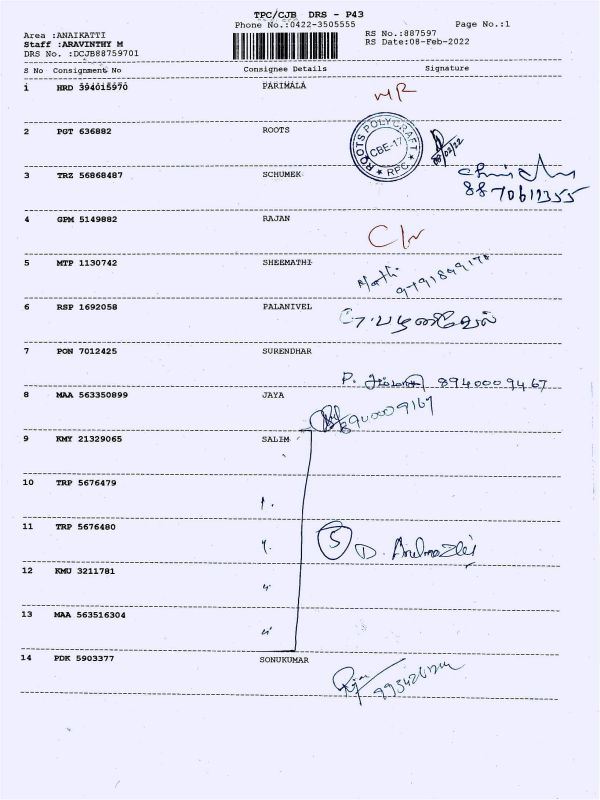 TPC/CJB DRS - P43
Phone No.:0422-3505555
Page No.:1
Area :ANAIKATTI
Staff :ARAVINTHY M
DRS No. :DCJB88759701
RS No.:887597
RS Date:08-Feb-2022
S No Consignment No Consignee Details Signature
1 HRD 394015970 PARIMALA
2 PGT 636882 ROOTS
ROOTS POLYCRAFT
CBE-17
★ RPC ★
08/02/22
3 TRZ 56868487 SCHUMEK
4 GPM 5149882 RAJAN
5 MTP 1130742 SHEEMATHI
6 RSP 1692058 PALANIVEL
7 PON 7012425 SURENDHAR
8940009467
8 MAA 563350899 JAYA
9 KMY 21329065 SALIM
10 TRP 5676479
11 TRP 5676480
5
12 KMU 3211781
13 MAA 563516304
14 PDK 5903377 SONUKUMAR